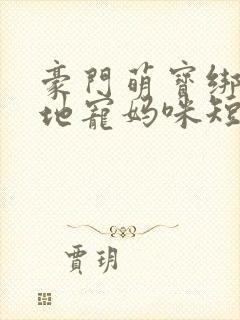 豪門萌寶綁
地寵媽咪短
賈玥